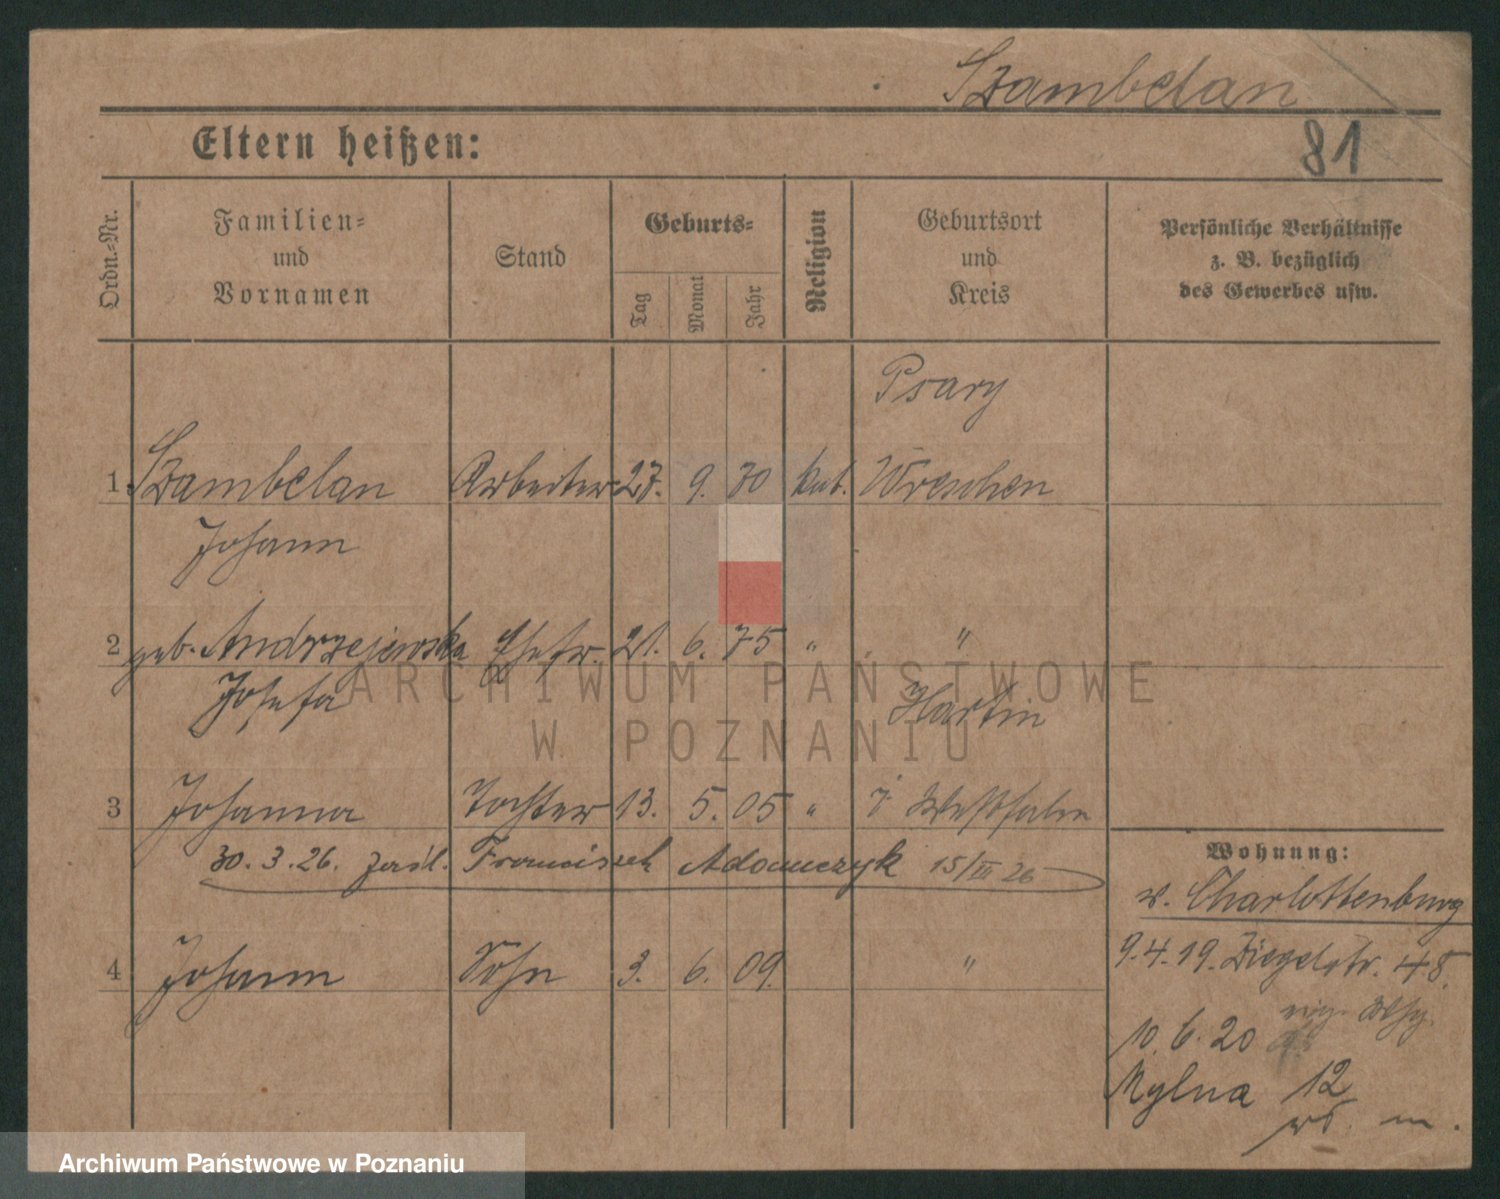 Szambelan
81
Eltern heißen:
Ordn.-Nr.
Familien-
und
Vornamen
Stand
Geburts-
Tag
Monat
Jahr
Religion
Geburtsort
und
Kreis
Persönliche Verhältnisse
z. B. bezüglich
des Gewerbes usw.
Psary
1 Szambelan Arbeiter 27. 9. 70 kat. Wreschen
Johann
2 geb. Andrzejewska Ehefr. 21. 6. 75 " "
Josefa
Hartin
3 Johanna Tochter 13. 5. 05 " i Westfalen
30.3.26. Franciszek Adamczyk 15/III 26
4 Johann Sohn 3. 6. 09. "
Wohnung:
v. Charlottenburg
9.4.19. Ziegelstr. 48.
10.6.20
Mylna 12
ARCHIWUM PAŃSTWOWE
W POZNANIU
Archiwum Państwowe w Poznaniu